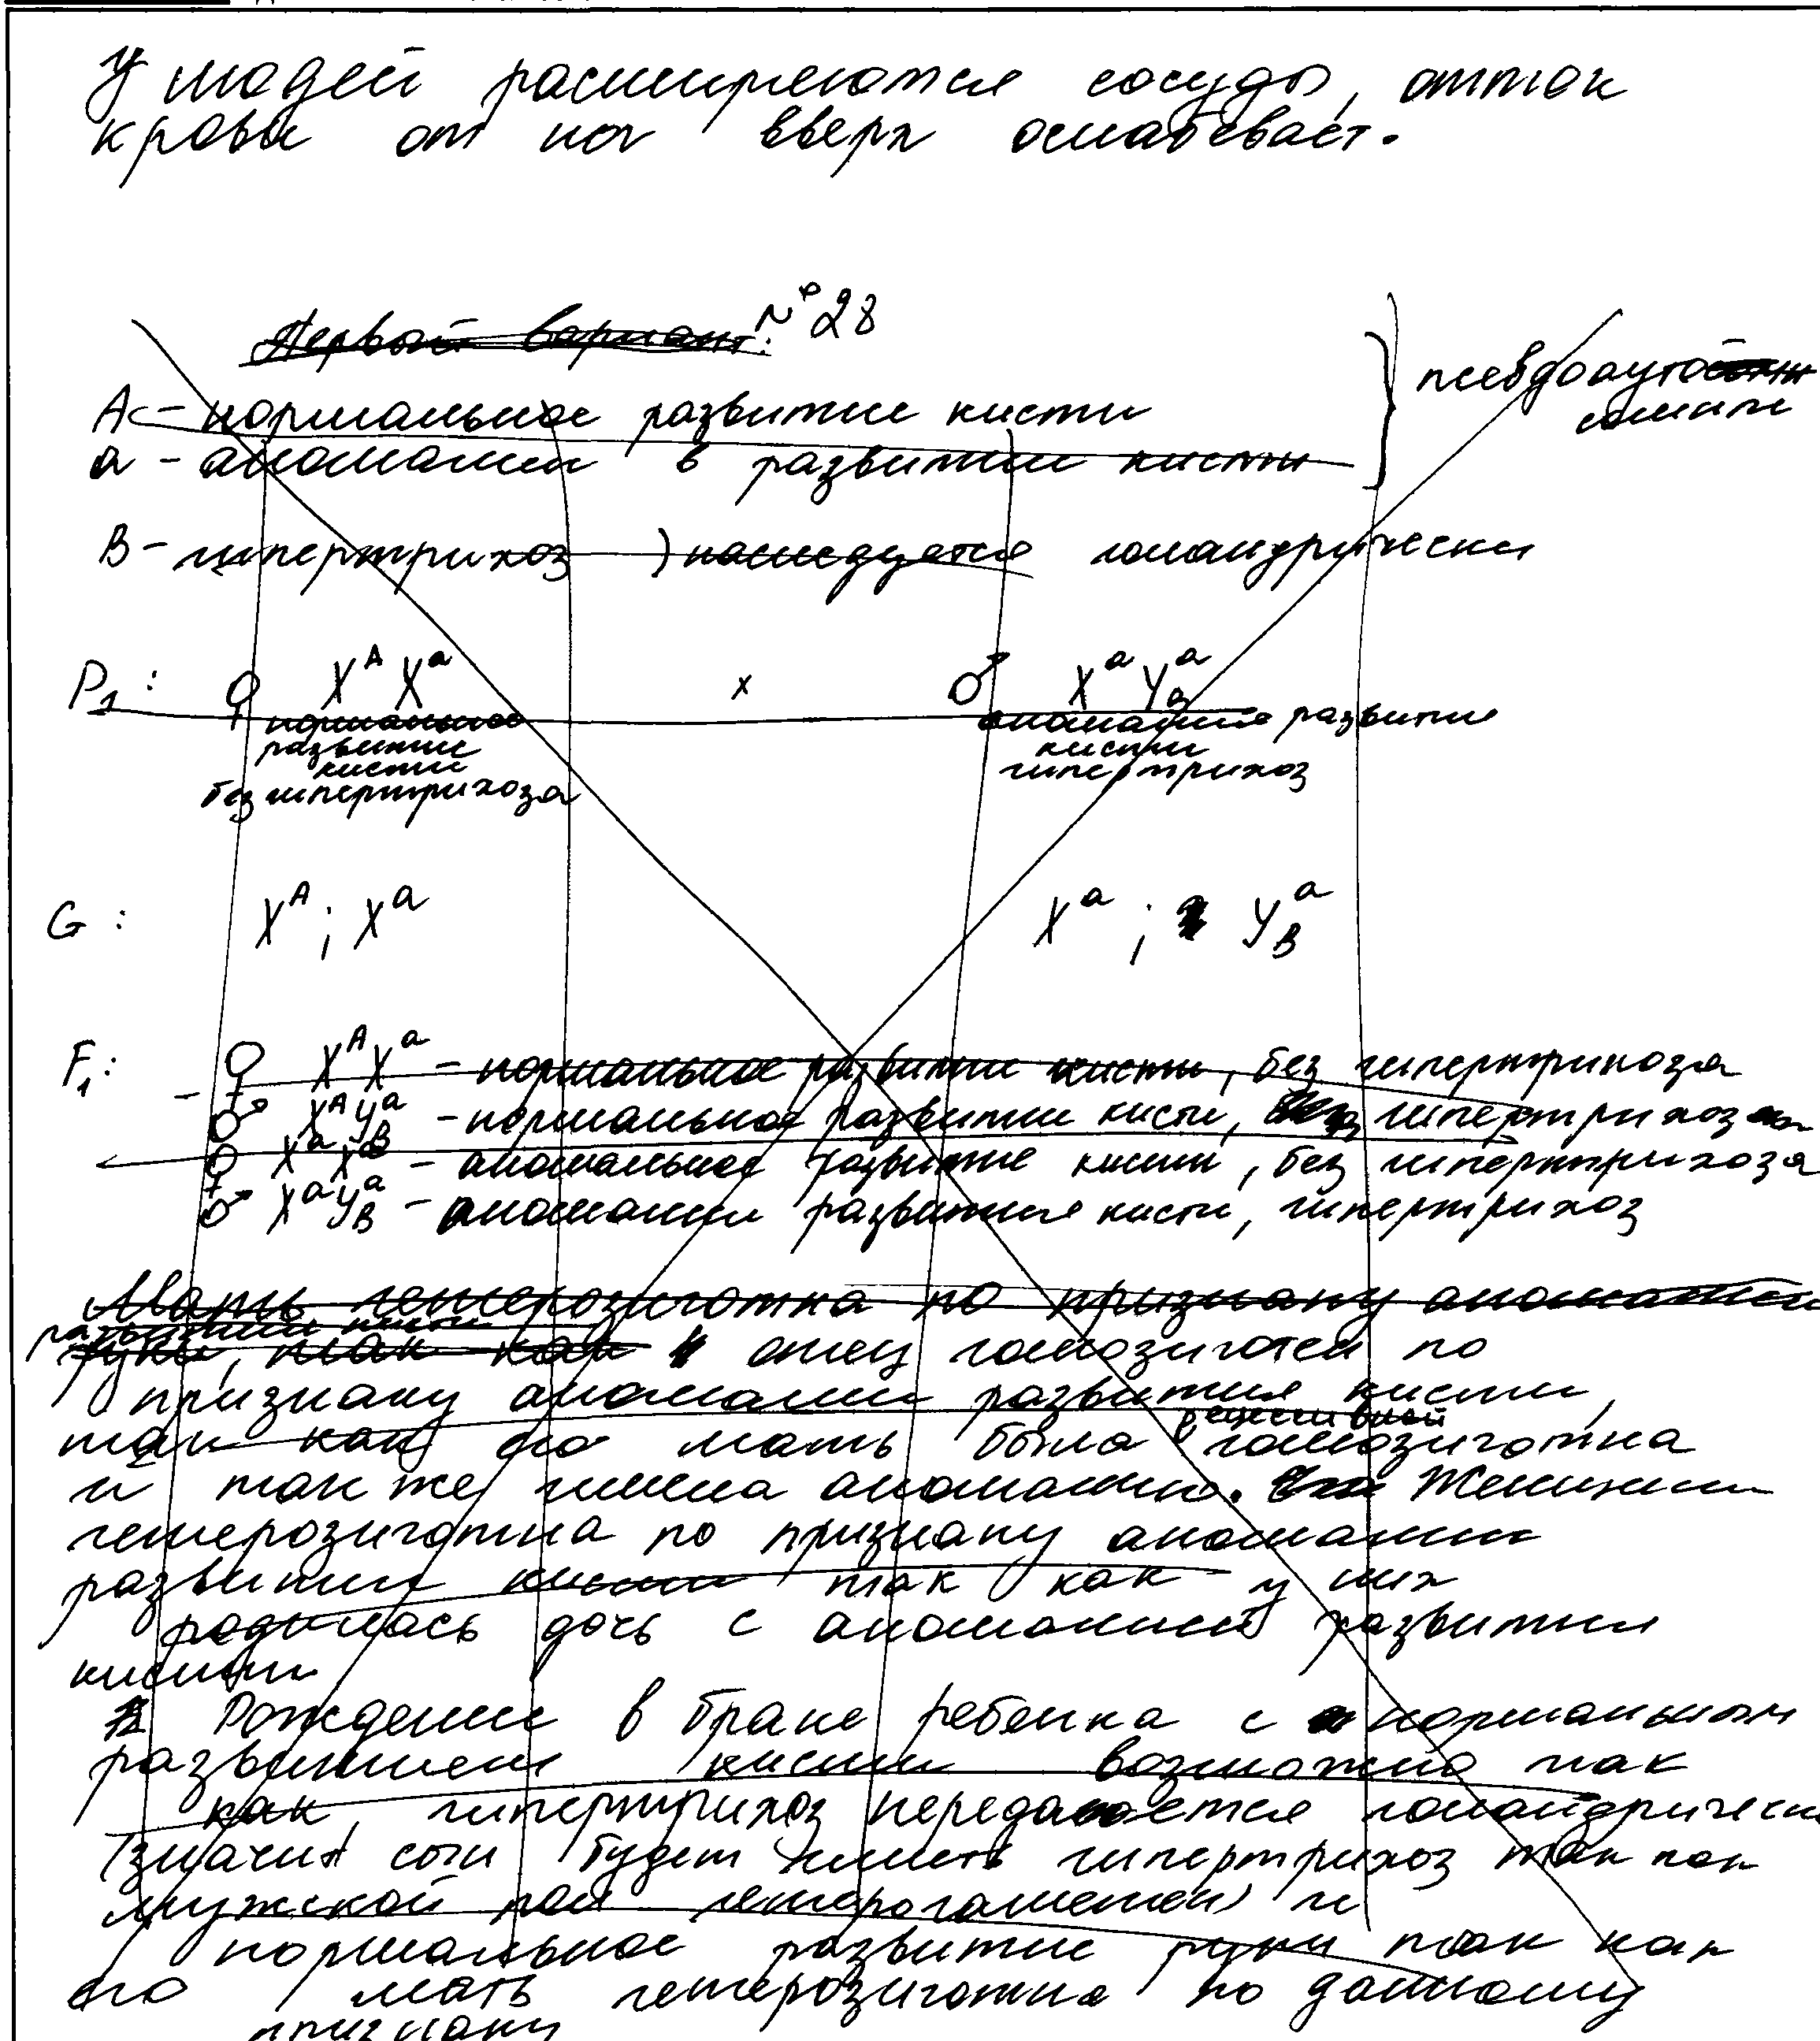 У людей расширяются сосуды, отток
крови от ног вверх ослабевает.
Первый вариант: №28
А - нормальное развитие кисти
а - аномалии в развитии кисти
псевдоаутосомные
В - гипертрихоз ) наследуется голандрически
P1: ♀ X^A X^a x ♂ X^a Y^a_B
нормальное развитие кисти без гипертрихоза
аномалия развития кисти гипертрихоз
G: X^A ; X^a X^a ; Y^a_B
F1: ♀ X^A X^a - нормальное развитие кисти, без гипертрихоза
♂ X^A Y^a_B - нормальное развитие кисти, гипертрихоз
♀ X^a X^a - аномальное развитие кисти, без гипертрихоза
♂ X^a Y^a_B - аномалии развития кисти, гипертрихоз
Мать гетерозиготна по признаку аномалии
развития кисти
руки, так как отец гомозиготен по
признаку аномалии развития кисти,
рецессивной
так как его мать была гомозиготна
и так же имела аномалию. Женщина
гетерозиготна по признаку аномалии
развития кисти так как у них
родилась дочь с аномалией развития
кисти
Рождение в браке ребенка с нормальным
развитием кисти возможно так
как, гипертрихоз передается голандрически
(значит сын будет иметь гипертрихоз так как
мужской пол гетерогаметен) и
нормальное развитие руки так как
его мать гетерозиготна по данному
признаку